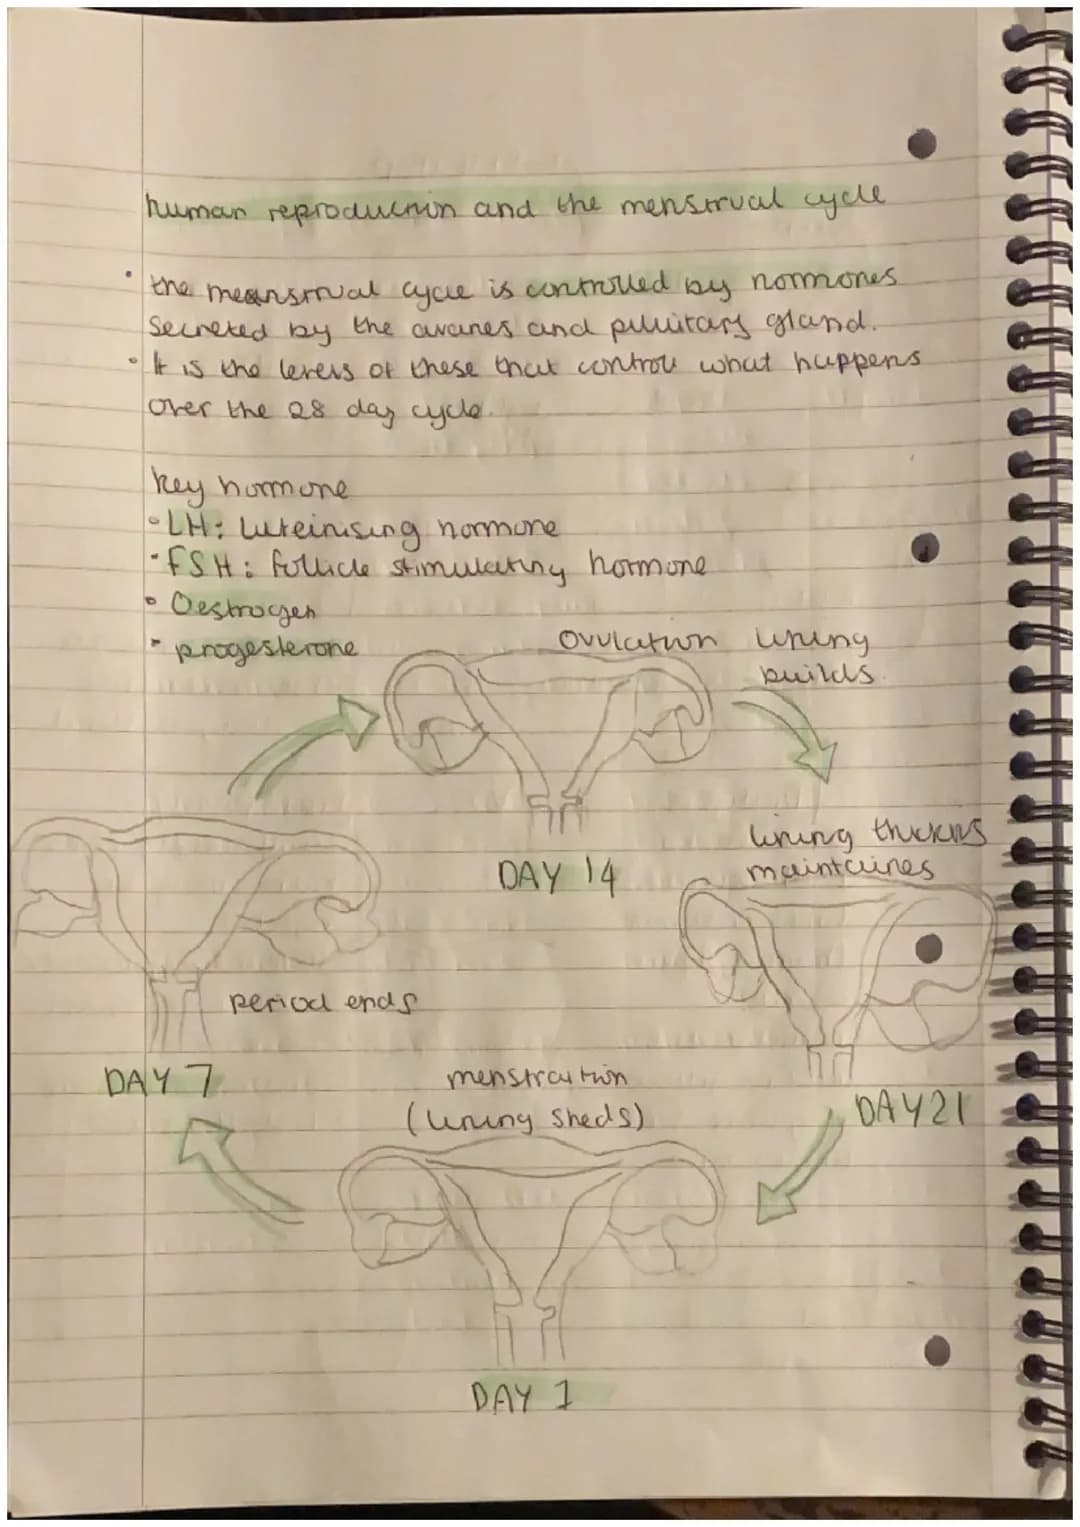 human reproduction and the menstrual cycle
• the meanstrual cycle is controlled by hormones
secreted by the ovaries and pituitary gland.
• It is the levels of these that control what happens
over the 28 day cycle.
key hormone
• LH: luteinising hormone
• FSH: follicle stimulating hormone
• Oestrogen
• progesterone
Ovulation lining
builds.
DAY 14
lining thickens
maintaines
period ends
DAY 7
menstration
(lining sheds)
DAY 21
DAY 1